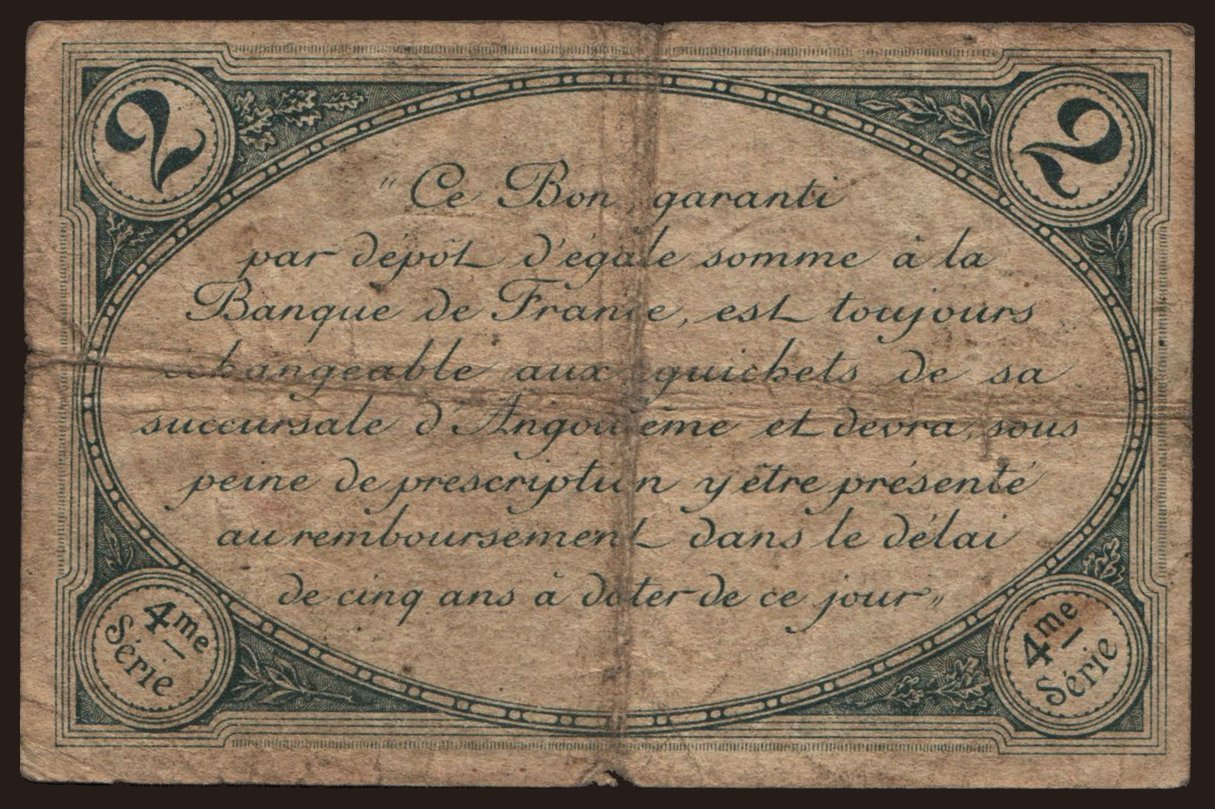 2 2
"Ce Bon, garanti
par dépôt d'égale somme à la
Banque de France, est toujours
échangeable aux guichets de sa
succursale d'Angoulême et devra, sous
peine de prescription y être présenté
au remboursement dans le délai
de cinq ans à dater de ce jour"
4me Série
4me Série